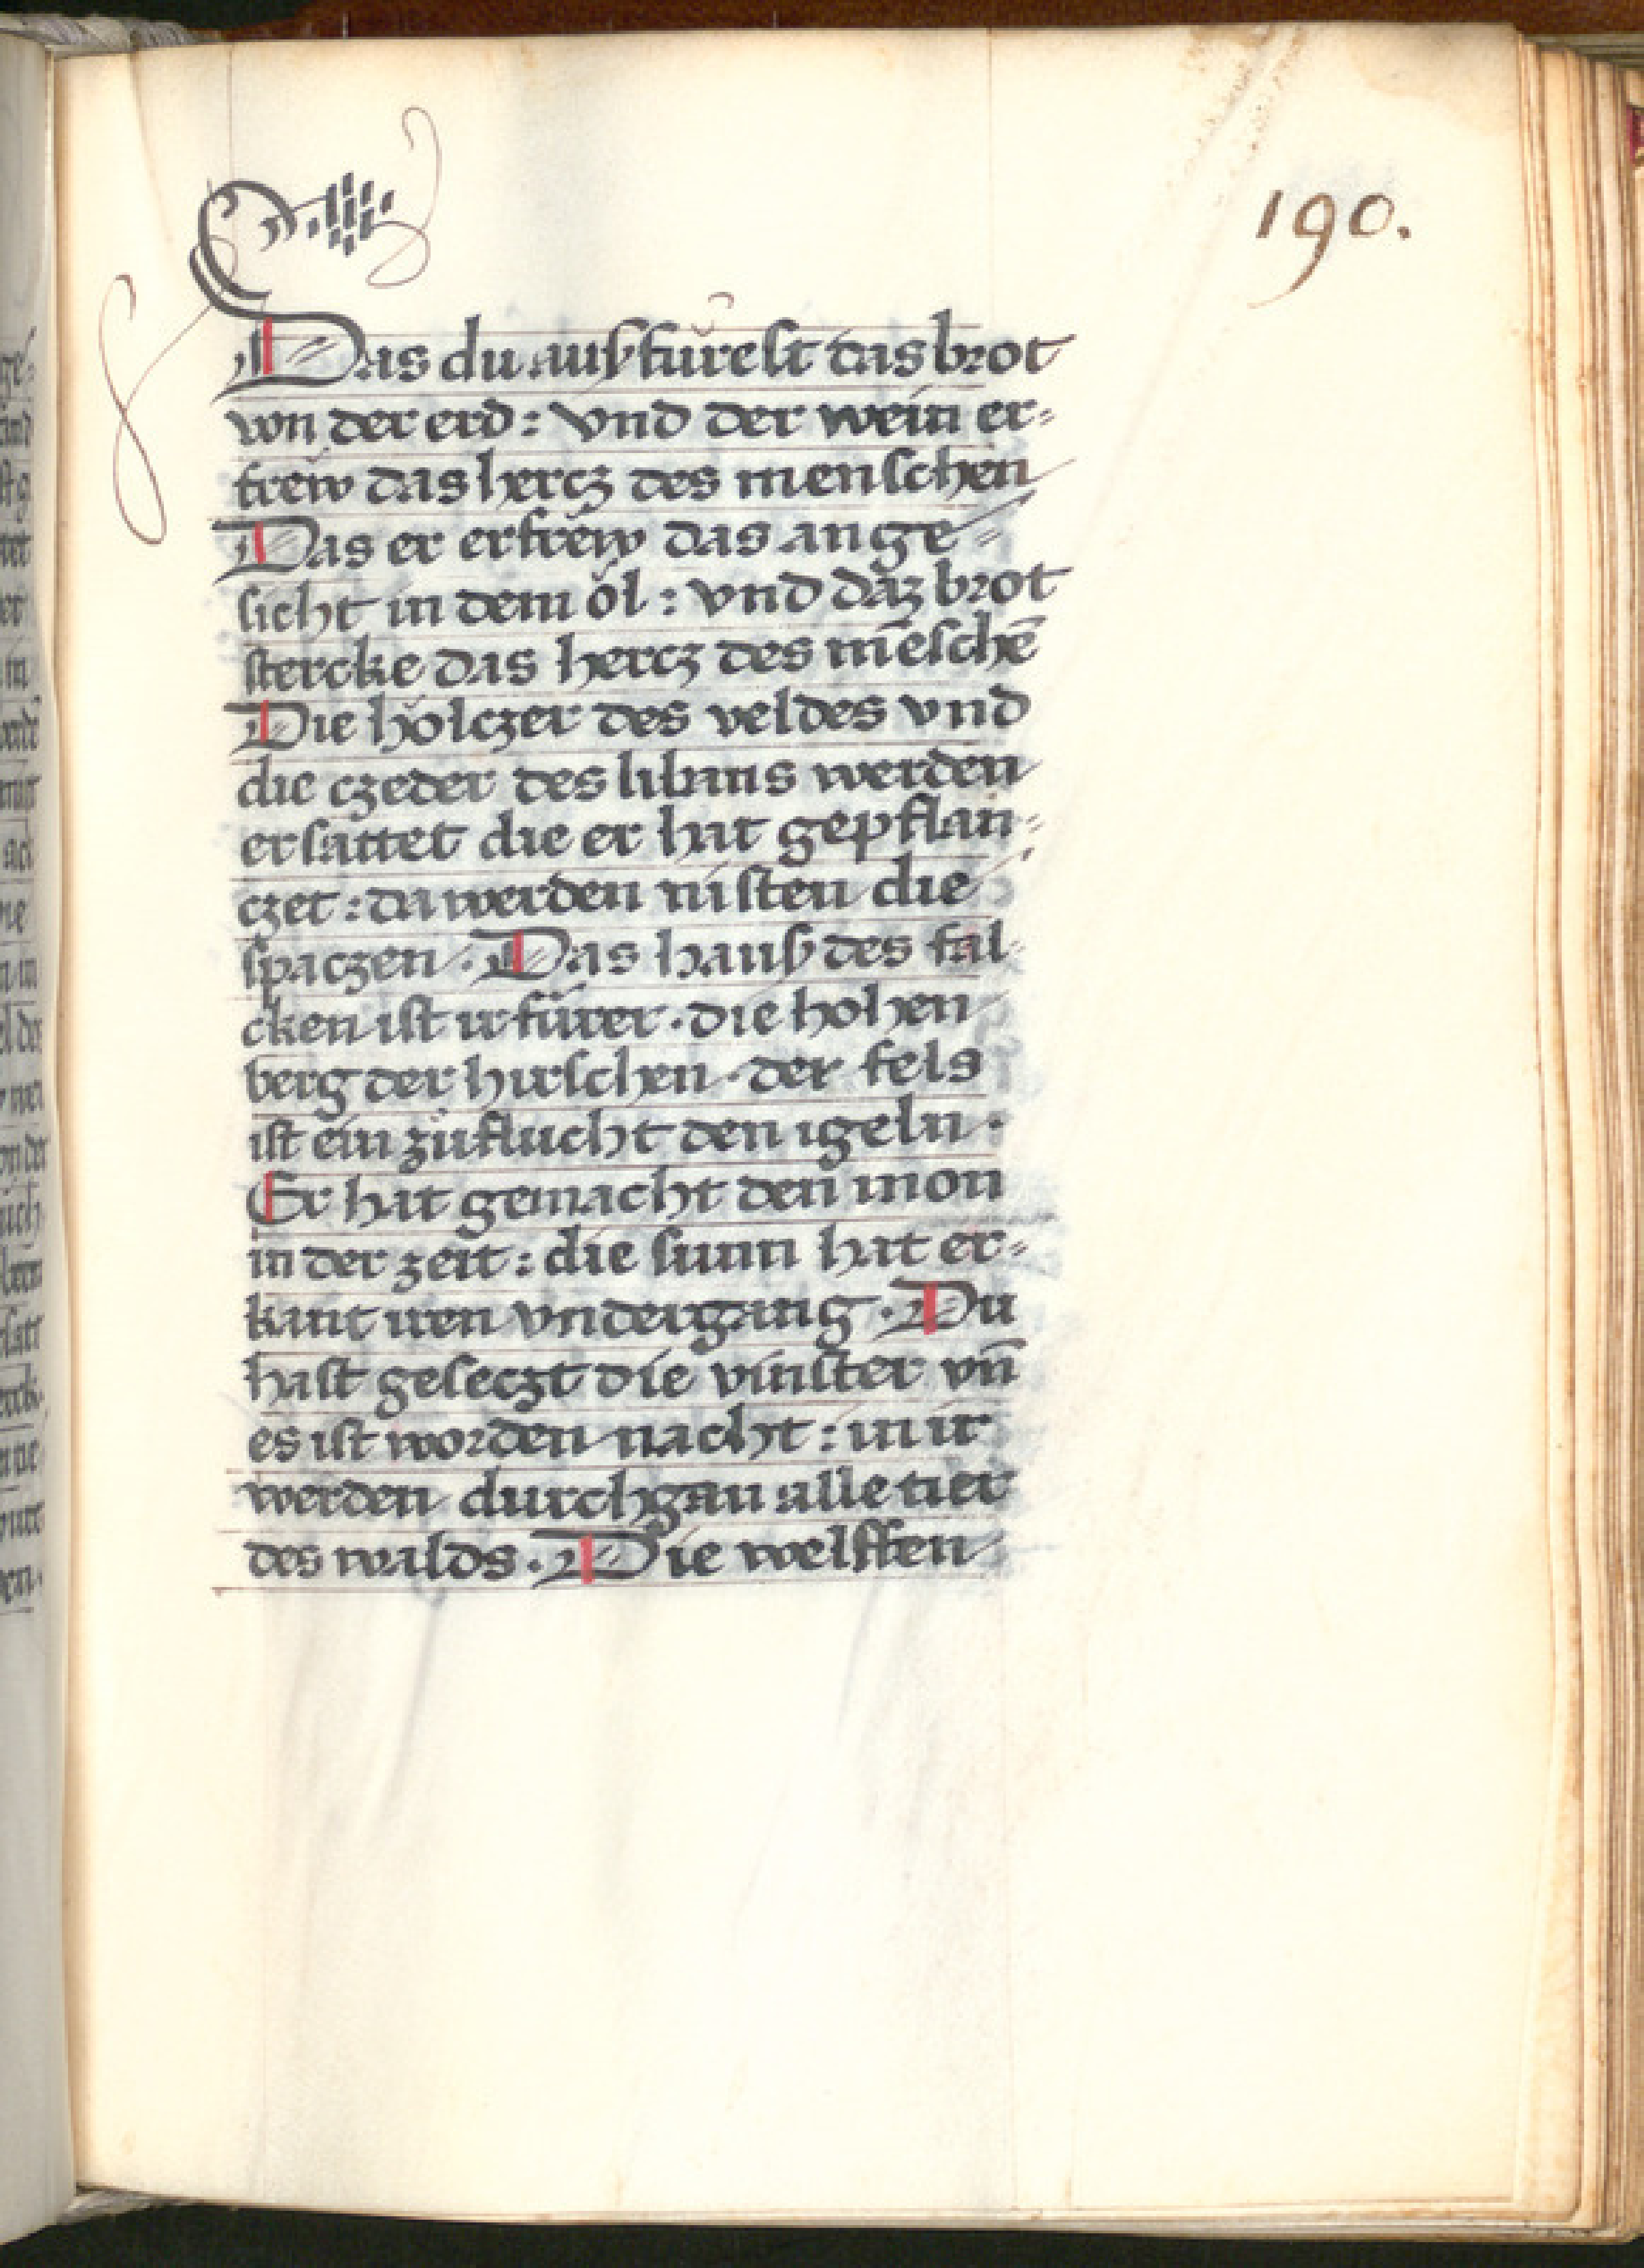 190.
Das du ausfürest das brot
von der erd: vnd der wein er=
frew das hercz des menschen
Das er erfrew das ange=
sicht in dem öl: vnd daz brot
stercke das hercz des mēschē
Die hölczer des veldes vnd
die czeder des libans werden
ersattet die er hat gepflan=
czet: da werden nisten die
spaczen. Das haus des fal=
cken ist ir fürer. die hohen
berg der hirschen. der fels
ist ein zuflucht den igeln.
Er hat gemacht den mon
in der zeit: die sunn hat er=
kant iren vndergang. Du
hast geseczt die vinster vn̄
es ist worden nacht: in ir
werden durchgan alle tier
des walds. Die welffen